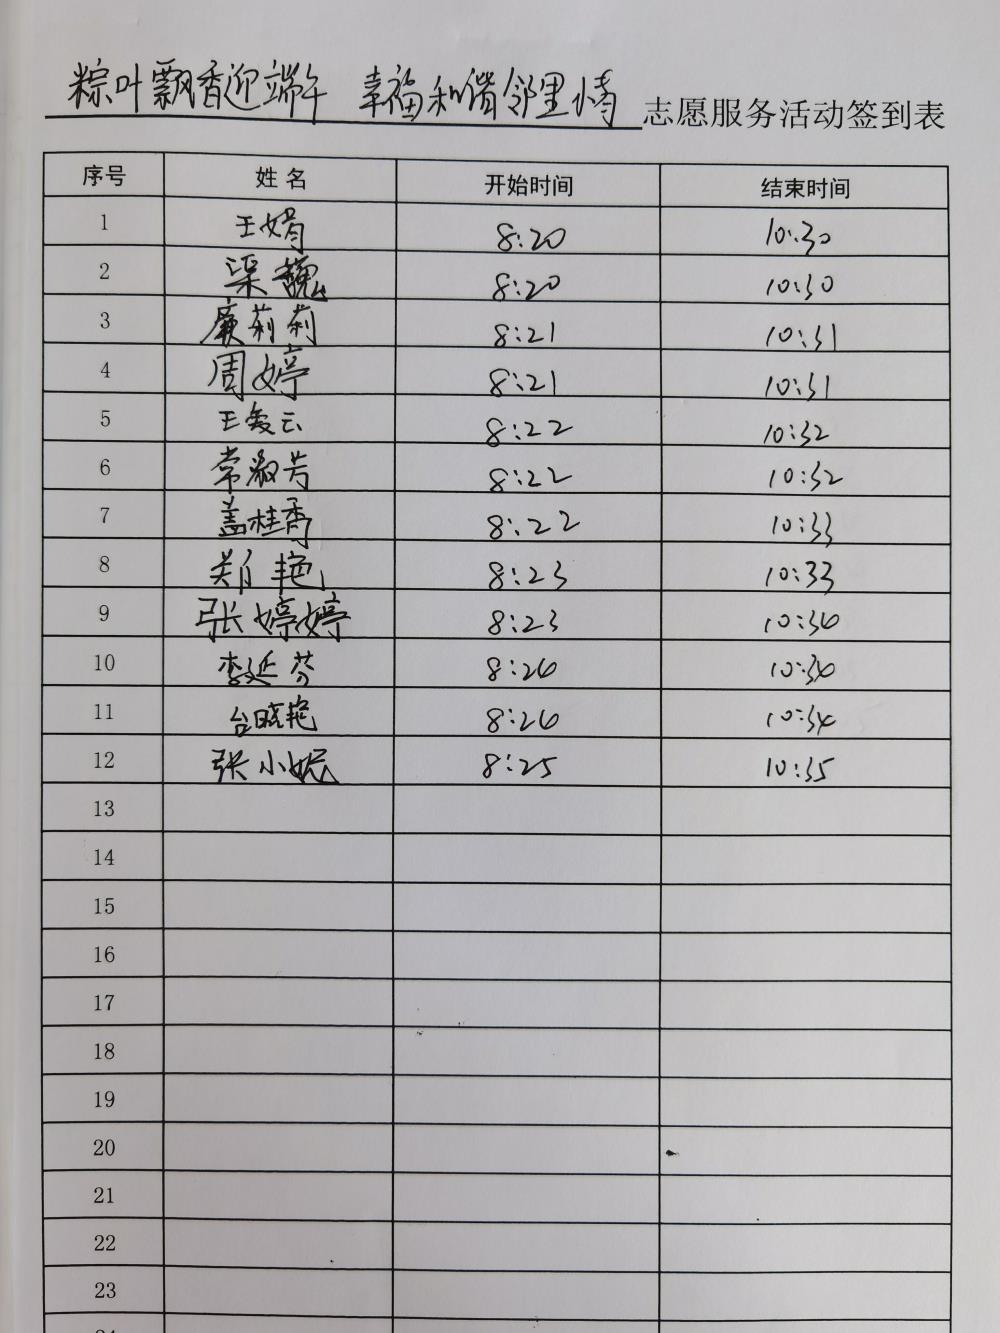 粽叶飘香迎端午 幸福和谐邻里情 志愿服务活动签到表
序号 姓名 开始时间 结束时间
1 王娟 8:20 10:30
2 渠巍 8:20 10:30
3 廉莉莉 8:21 10:31
4 周婷 8:21 10:31
5 王爱云 8:22 10:32
6 常淑芳 8:22 10:32
7 盖桂香 8:22 10:33
8 郑艳 8:23 10:33
9 张婷婷 8:23 10:34
10 李延芬 8:24 10:34
11 台晓艳 8:24 10:34
12 张小妮 8:25 10:35
13
14
15
16
17
18
19
20
21
22
23